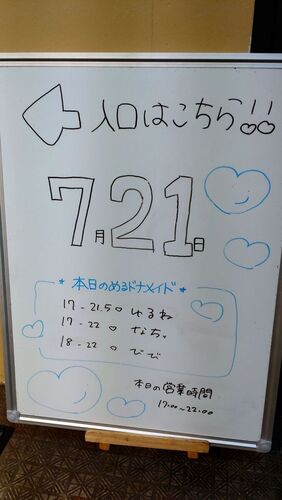 ← 入口はこちら!!
7月21日
*本日のめるドナメイド*
17-21.5○ ゆるね
17-22○ なち。
18-22○ びび
本日の営業時間
17:00~22:00